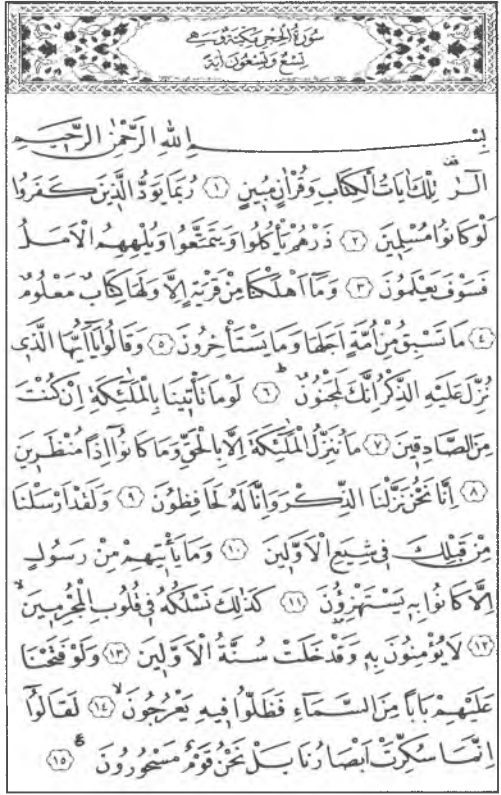 سُورَةُ الْحِجْرِ مَكِّيَّةٌ وَهِيَ
تِسْعٌ وَتِسْعُونَ اٰيَةً
بِسْمِ اللّٰهِ الرَّحْمٰنِ الرَّحِيمِ
الٓرٰ تِلْكَ اٰيَاتُ الْكِتَابِ وَقُرْاٰنٍ مُبِينٍ ﴿١﴾ رُبَمَا يَوَدُّ الَّذِينَ كَفَرُوا
لَوْ كَانُوا مُسْلِمِينَ ﴿٢﴾ ذَرْهُمْ يَأْكُلُوا وَيَتَمَتَّعُوا وَيُلْهِهِمُ الْاَمَلُ
فَسَوْفَ يَعْلَمُونَ ﴿٣﴾ وَمَٓا اَهْلَكْنَا مِنْ قَرْيَةٍ اِلَّا وَلَهَا كِتَابٌ مَعْلُومٌ
﴿٤﴾ مَا تَسْبِقُ مِنْ اُمَّةٍ اَجَلَهَا وَمَا يَسْتَأْخِرُونَ ﴿٥﴾ وَقَالُوا يَٓا اَيُّهَا الَّذِي
نُزِّلَ عَلَيْهِ الذِّكْرُ اِنَّكَ لَمَجْنُونٌ ﴿٦﴾ لَوْ مَا تَأْتِينَا بِالْمَلٰٓئِكَةِ اِنْ كُنْتَ
مِنَ الصَّادِقِينَ ﴿٧﴾ مَا نُنَزِّلُ الْمَلٰٓئِكَةَ اِلَّا بِالْحَقِّ وَمَا كَانُٓوا اِذًا مُنْظَرِينَ
﴿٨﴾ اِنَّا نَحْنُ نَزَّلْنَا الذِّكْرَ وَاِنَّا لَهُ لَحَافِظُونَ ﴿٩﴾ وَلَقَدْ اَرْسَلْنَا
مِنْ قَبْلِكَ فِي شِيَعِ الْاَوَّلِينَ ﴿١٠﴾ وَمَا يَأْتِيهِمْ مِنْ رَسُولٍ
اِلَّا كَانُوا بِهِ يَسْتَهْزِؤُنَ ﴿١١﴾ كَذٰلِكَ نَسْلُكُهُ فِي قُلُوبِ الْمُجْرِمِينَۙ
﴿١٢﴾ لَا يُؤْمِنُونَ بِهِ وَقَدْ خَلَتْ سُنَّةُ الْاَوَّلِينَ ﴿١٣﴾ وَلَوْ فَتَحْنَا
عَلَيْهِمْ بَابًا مِنَ السَّمَٓاءِ فَظَلُّوا فِيهِ يَعْرُجُونَۙ ﴿١٤﴾ لَقَالُٓوا
اِنَّمَا سُكِّرَتْ اَبْصَارُنَا بَلْ نَحْنُ قَوْمٌ مَسْحُورُونَ ۟ع ﴿١٥﴾